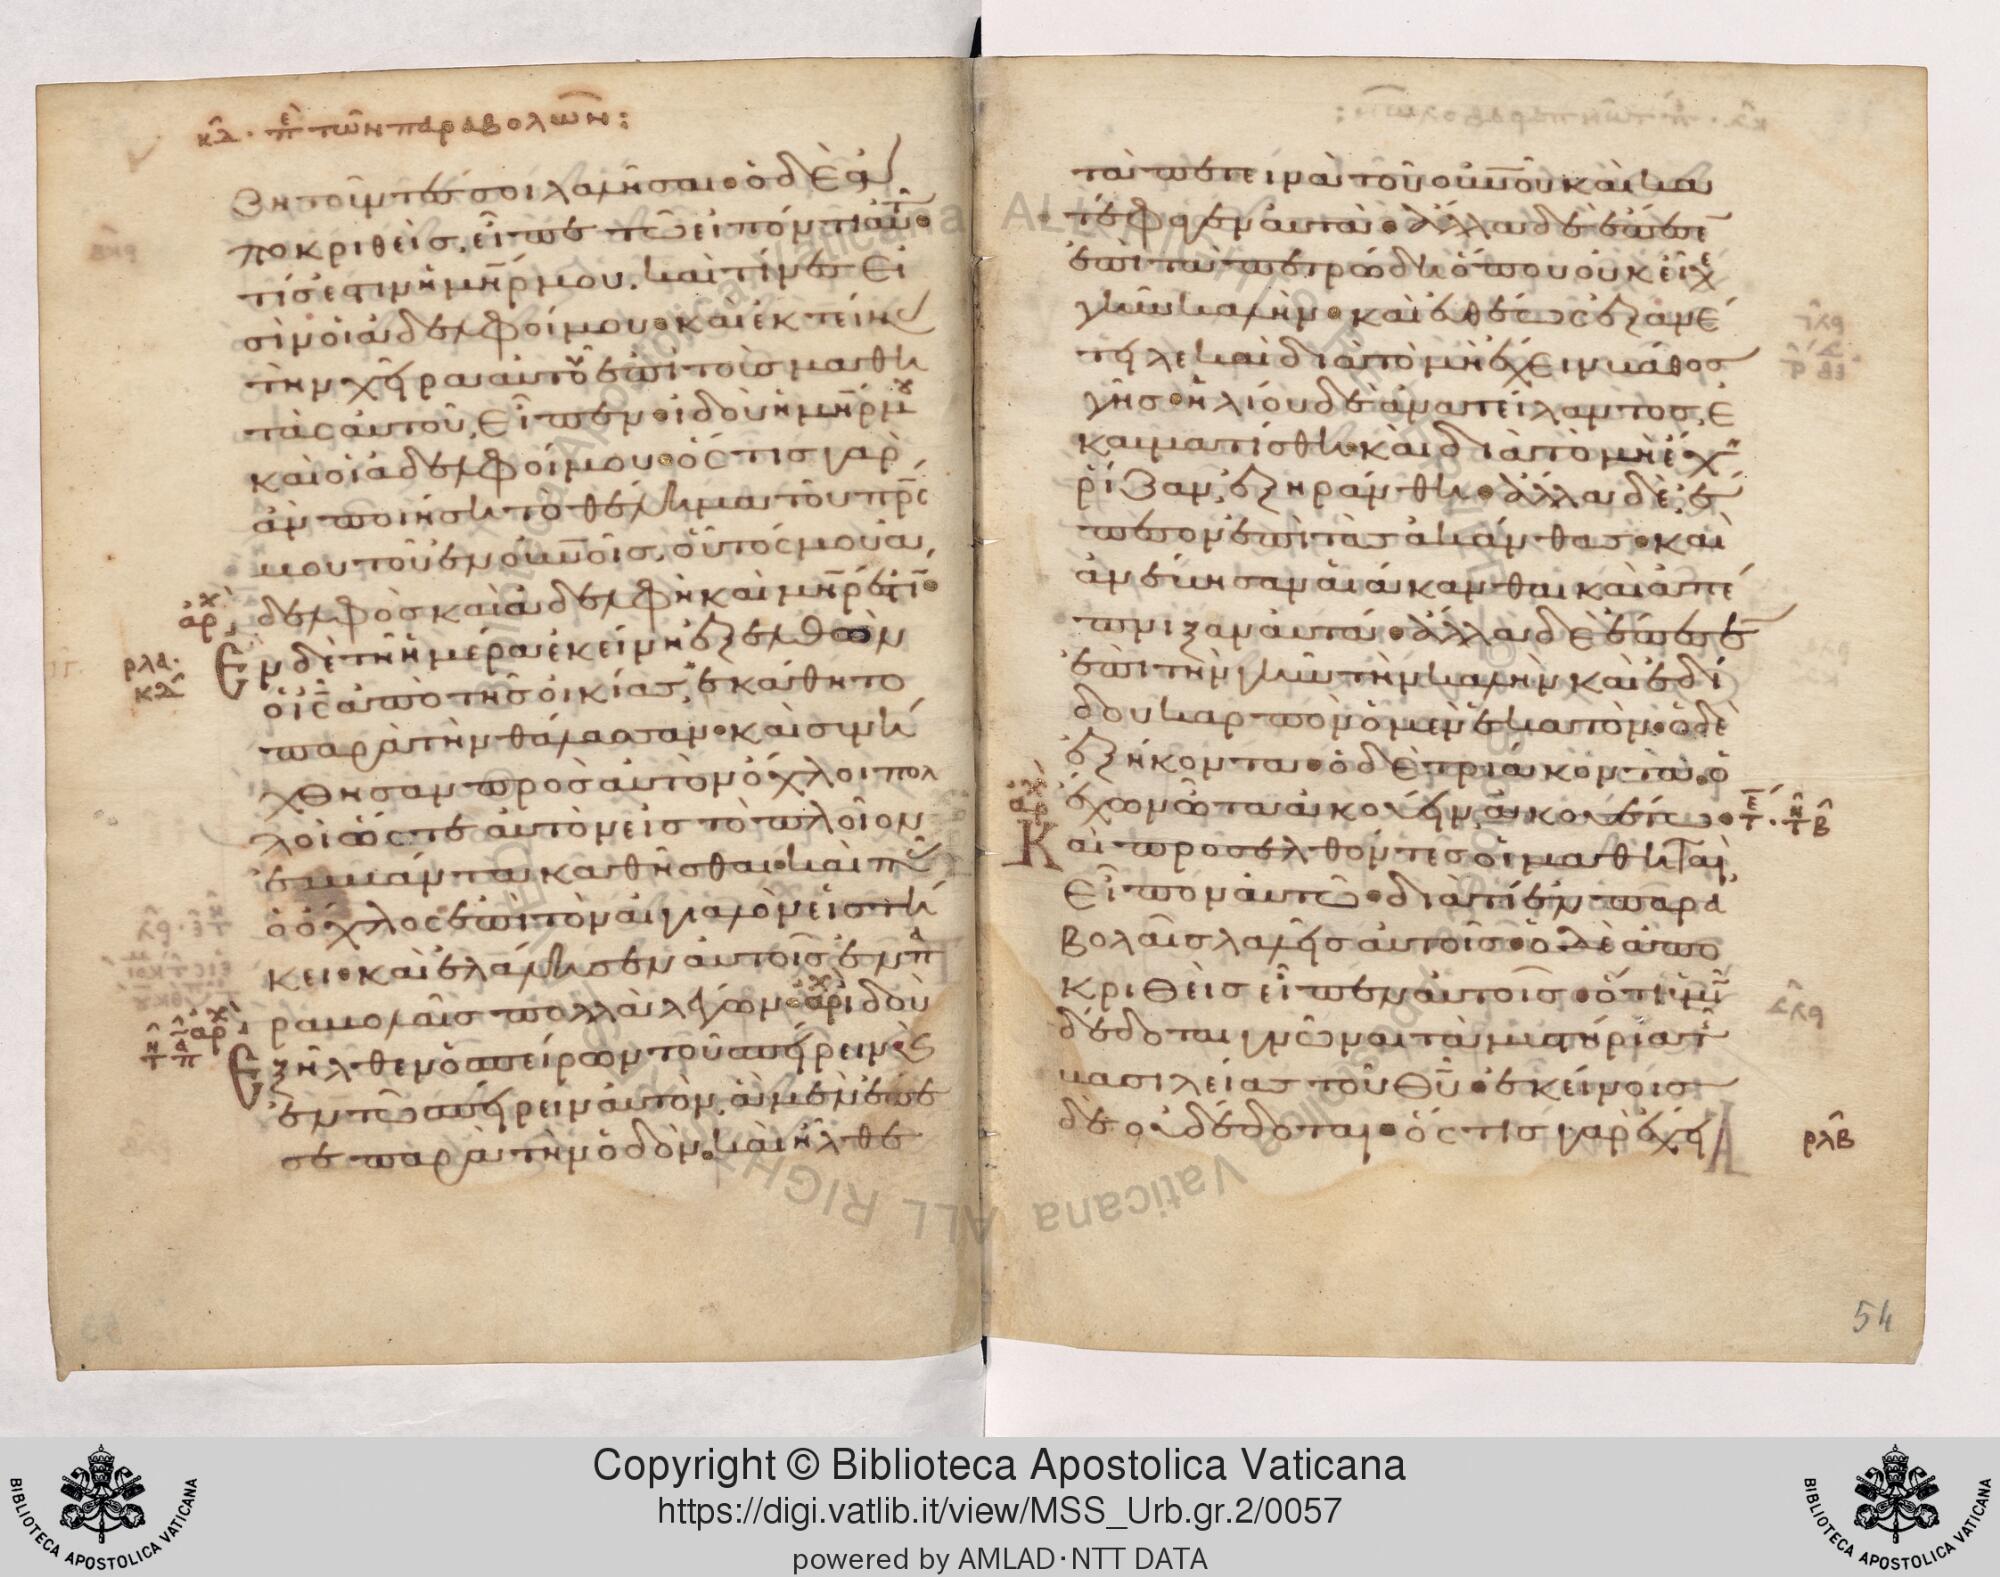 κδ · πε των παραβολων :
ζητοῦντές σοι λαλῆσαι. ὁ δὲ ἀ
ποκριθεὶς, εἶπε τῷ εἰπόντι αὐτ.
τίς ἐστιν ἡ μηρ μου. καὶ τίνες εἰ
σὶν οἱ ἀδελφοί μου. καὶ ἐκτείνας
τὴν χεῖρα αὐτοῦ ἐπὶ τοὺς μαθη
τὰς αὐτοῦ, εἶπεν. ἰδοὺ ἡ μηρ μου
καὶ οἱ ἀδελφοί μου. ὅστις γὰρ
ἂν ποιήσῃ τὸ θέλημα τοῦ πρς
μου τοῦ ἐν οὐνοῖς, οὗτός μου ἀ
δελφὸς καὶ ἀδελφὴ καὶ μηρ ἐστί.
ἀρχ
ρλα.
κδ
Ἐν δὲ τῇ ἡμέρα ἐκείνη ἐξελθὼν
ὁ ις ἀπὸ τῆς οἰκίας, ἐκάθητο
παρὰ τὴν θάλασσαν. καὶ συνή
χθησαν πρὸς αὐτὸν ὄχλοι πολ
λοὶ ὥστε αὐτὸν εἰς τὸ πλοῖον
ἐμβάντα καθῆσθαι. καὶ πᾶς
ὁ ὄχλος ἐπὶ τὸν αἰγιαλὸν εἱστή
κει. καὶ ἐλάλησεν αὐτοῖς ἐν πα
ραβολαῖς πολλὰ λέγων. ἀρχ ἰδοὺ
ἀρχ
Ἐξῆλθεν ὁ σπείρων τοῦ σπείρειν. καὶ
ἐν τῷ σπείρειν αὐτὸν, ἃ μὲν ἔπε
σε παρὰ τὴν ὁδόν. καὶ ἦλθε
τὰ πετεινὰ τοῦ οὐνοῦ καὶ κα
τέφαγεν αὐτά. ἄλλα δὲ ἔπεσεν
ἐπὶ τὰ πετρώδη ὅπου οὐκ εἶχε
γῆν πολλήν. καὶ εὐθέως ἐξανέ
τειλε διὰ τὸ μὴ ἔχειν βάθος
γῆς. ἡλίου δὲ ἀνατείλαντος, ἐ
καυματίσθη. καὶ διὰ τὸ μὴ ἔχειν
ῥίζαν, ἐξηράνθη. ἄλλα δὲ, ἔ
πεσον ἐπὶ τὰς ἀκάνθας. καὶ
ἀνέβησαν αἱ ἄκανθαι καὶ ἀπέ
πνιξαν αὐτά. ἄλλα δὲ ἔπεσεν
ἐπὶ τὴν γῆν τὴν καλὴν καὶ ἐδί
δου καρπὸν ὁ μὲν ἑκατὸν. ὁ δὲ
ἑξήκοντα. ὁ δὲ τριάκοντα. ὁ
ἔχων ὦτα ἀκούειν, ἀκουέτω.
ἀρχ
Καὶ προσελθόντες οἱ μαθηταὶ,
εἶπον αὐτῷ. διὰ τί ἐν παρα
βολαῖς λαλεῖς αὐτοῖς. ὁ δὲ ἀπο
κριθεὶς εἶπεν αὐτοῖς. ὅτι ὑμῖν
δέδοται γνῶναι τὰ μυστήρια τῆς
βασιλείας τοῦ Θυ. ἐκείνοις
δὲ οὐ δέδοται. ὅστις γὰρ ἔχει
ρλβ
54
Copyright © Biblioteca Apostolica Vaticana
https://digi.vatlib.it/view/MSS_Urb.gr.2/0057
powered by AMLAD·NTT DATA
BIBLIOTECA APOSTOLICA VATICANA
BIBLIOTECA APOSTOLICA VATICANA